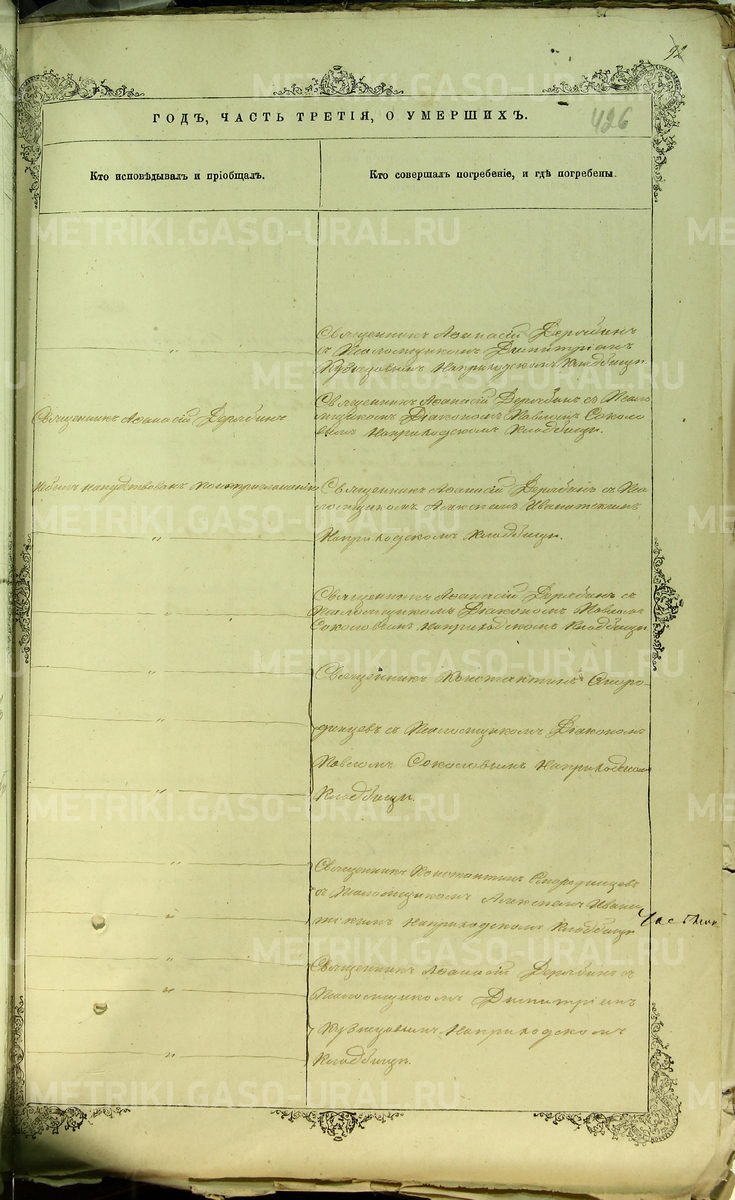 92
426
ГОДЪ, ЧАСТЬ ТРЕТІЯ, О УМЕРШИХЪ.
Кто исповѣдывалъ и пріобщалъ.
Кто совершалъ погребеніе, и гдѣ погребены.
METRIKI.GASO-URAL.RU
Священникъ Аѳанасій Дерябинъ
съ Псаломщикомъ Димитріемъ
Кузнецовымъ На приходскомъ Кладбищѣ.
Священникъ Аѳанасій Дерябинъ
Священникъ Аѳанасій Дерябинъ съ Псало
мщикомъ Діакономъ Павломъ Соколо
вымъ На приходскомъ Кладбищѣ.
Небылъ напутствованъ
Священникъ Аѳанасій Дерябинъ съ Пса
ломщикомъ
На приходскомъ Кладбищѣ.
Священникъ Аѳанасій Дерябинъ съ
Псаломщикомъ Діакономъ Павломъ
Соколовымъ На приходскомъ Кладбищѣ
Священникъ Константинъ Сморо-
динцевъ съ Псаломщикомъ Діакономъ
Павломъ Соколовымъ На приходскомъ
Кладбищѣ.
Священникъ Константинъ Смородинцевъ
съ Псаломщикомъ
На приходскомъ Кладбищѣ
Священникъ Аѳанасій Дерябинъ съ
Псаломщикомъ Димитріемъ
Кузнецовымъ На приходскомъ
Кладбищѣ.